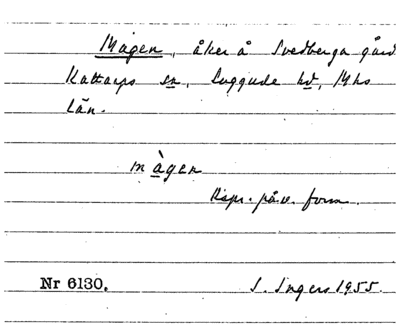 Magen, åker å Svedberga gård
Kattarps sn, Luggude hd, Mhs
län.
màgen
Rspr. påv. form.
Nr 6130. I. Ingers 1955.